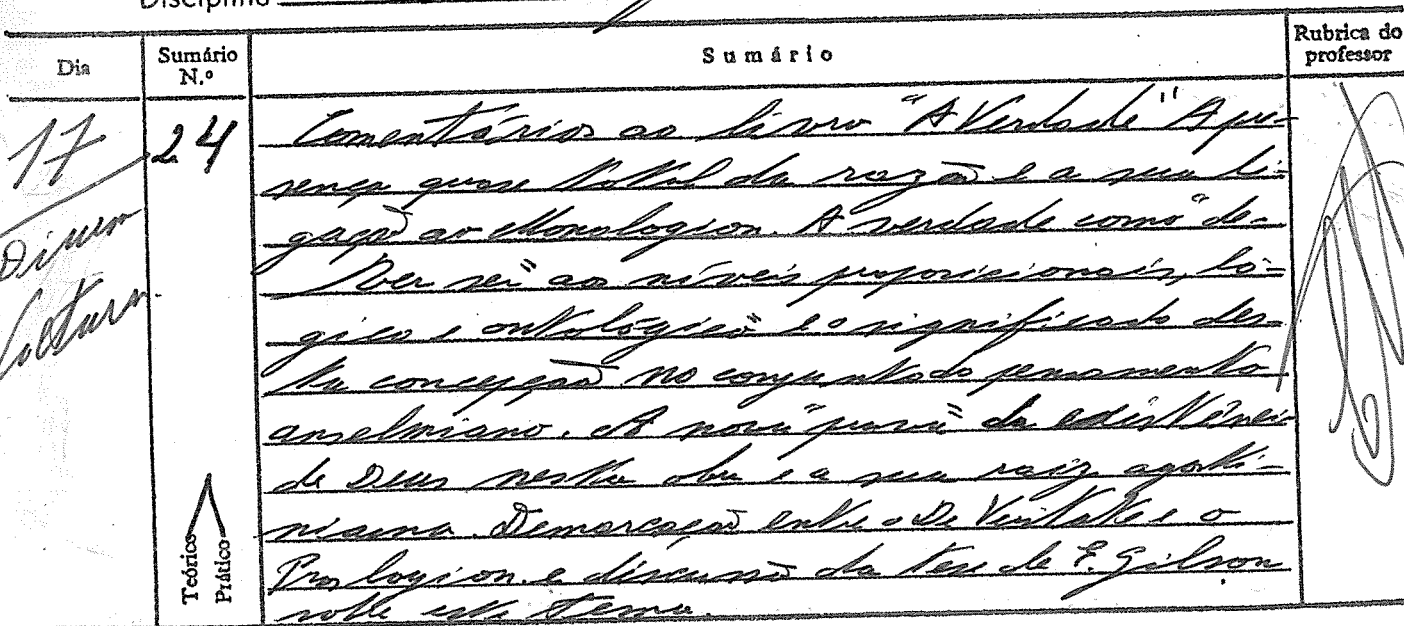 Disciplina
Dia
Sumário N.º
Sumário
Rubrica do professor
17
24
Comentários ao livro "A Verdade" A pre-
sença quase total da razão e a sua li-
gação ao Monologion. A verdade como "de-
ver ser" aos níveis proposicionais, ló-
gico e ontológico" e o significado des-
ta concepção no conjunto do pensamento
anselmiano. A nova "prova" da existência
de Deus nesta obra e a sua raiz agosti-
niana. Demarcação entre o De Veritate e o
Proslogion e discussão da tese de E. Gilson
sobre este tema.
Teórico
Prático